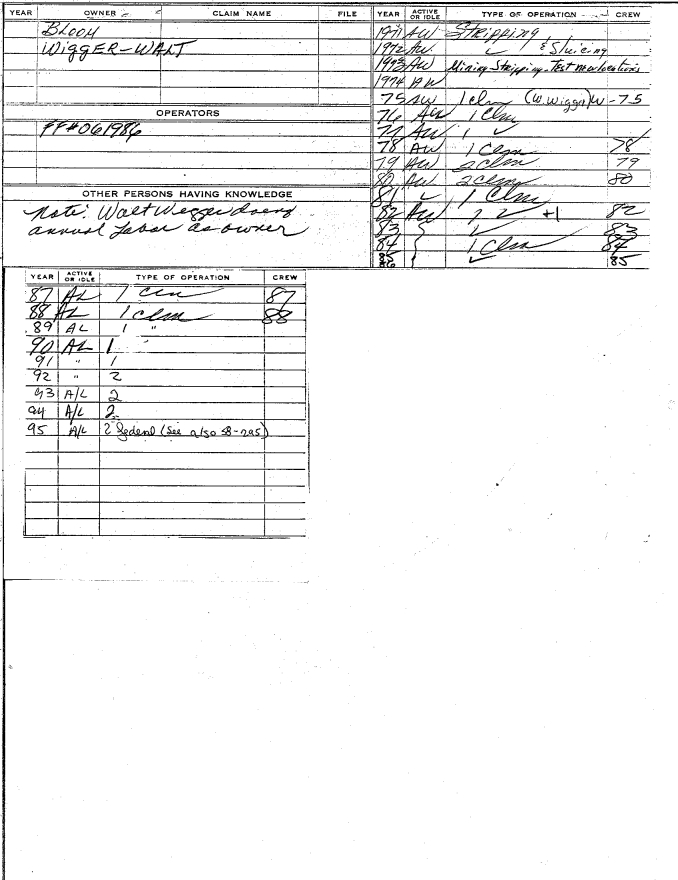 YEAR OWNER CLAIM NAME FILE
BLOOM
WIGGER-WALT
OPERATORS
FF#061986
OTHER PERSONS HAVING KNOWLEDGE
Note: Walt Wigger doing
annual Labor as owner
YEAR ACTIVE OR IDLE TYPE OF OPERATION CREW
1971 AW Stripping
1972 AW ✓ & Sluicing
1973 AW Mining-Stripping-Test new locations
1974 AW
75 AW 1 clm (W. Wigger) W-75
76 AW 1 Clm
77 AW 1 ✓
78 AW 1 Clm 78
79 AW 2 Clm 79
80 AW 2 Clm 80
81 ✓ 1 Clm
82 AW +1 82
83 ✓ 83
84 1 Clm 84
85 ✓ 85
86
YEAR ACTIVE OR IDLE TYPE OF OPERATION CREW
87 AL 1 clm 87
88 AL 1 clm 88
89 AL 1 "
90 AL 1
91 " 1
92 " 2
93 A/L 2
94 A/L 2
95 A/L 2 federal (See also 58-295)